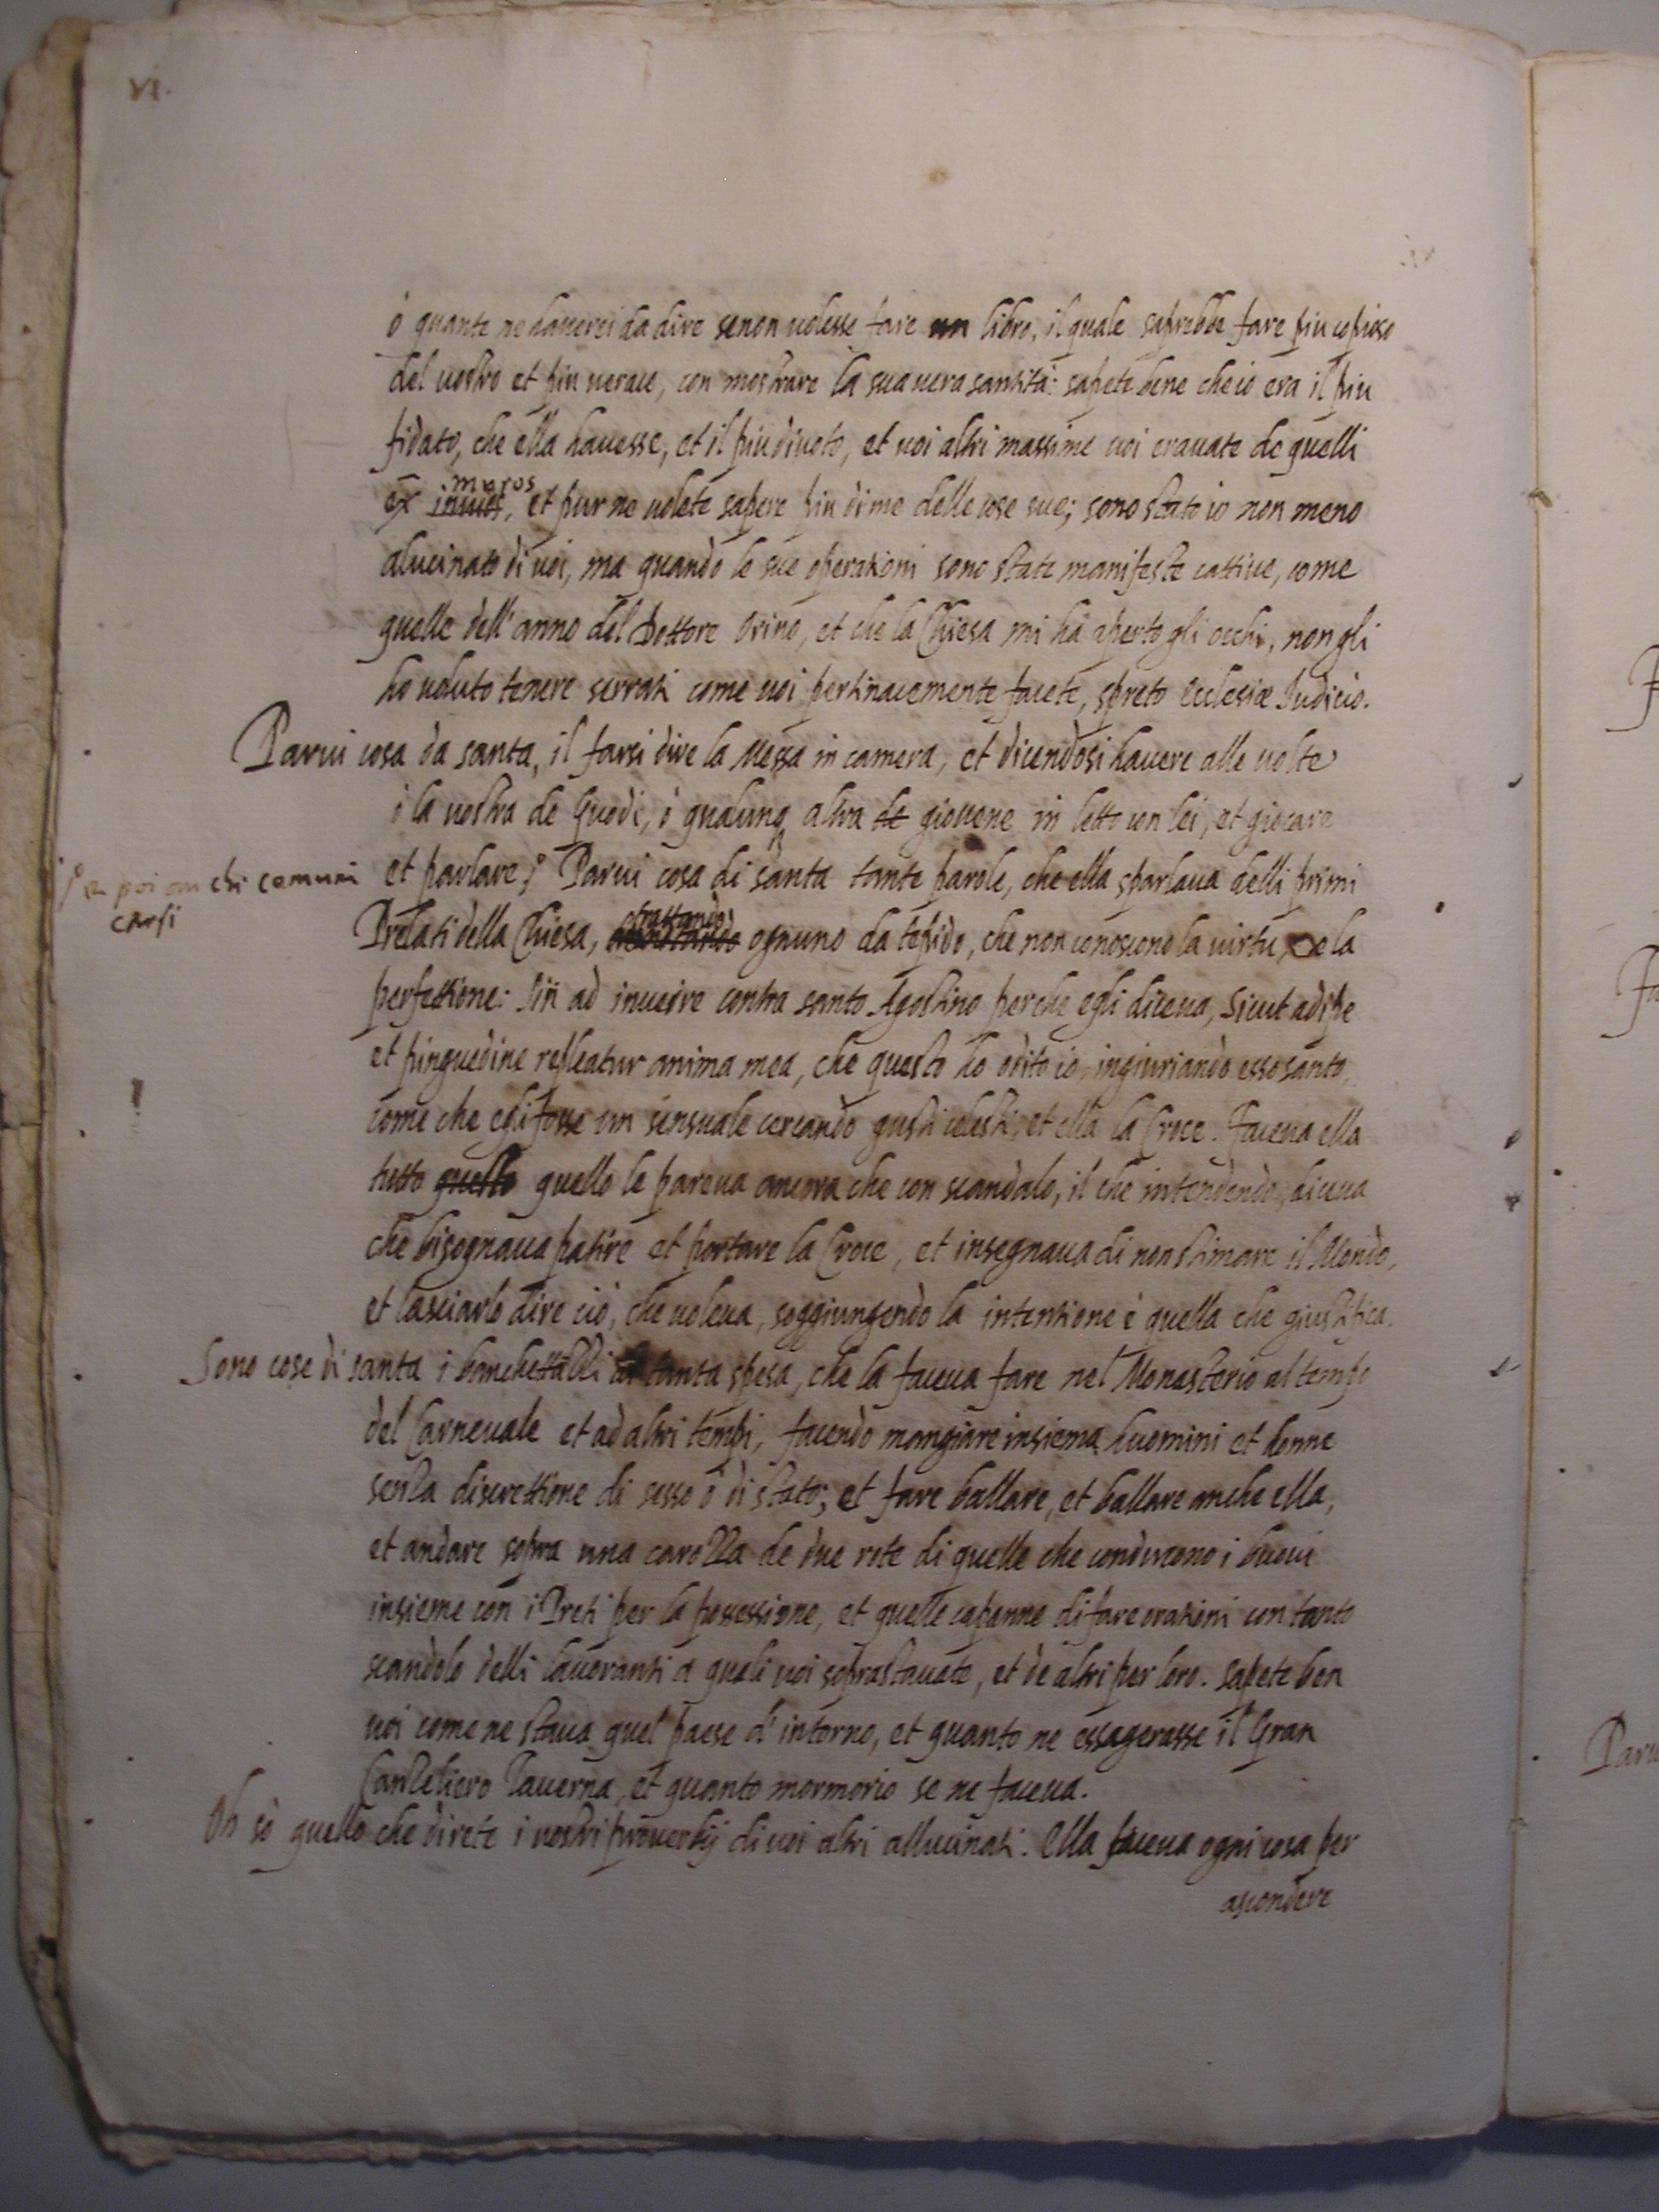 vi.
ò quante ne haverei da dire se non volesse fare un libro, il quale saprebbe fare piu copioso
del vostro et piu verace, con mostrare la sua vera santità: sapete bene che io era il piu
fidato, che ella havesse, et il piu divoto, et voi altri massime voi eravate de quelli
ex muros, et pur ne volete sapere piu di me delle cose sue; sono stato io non meno
alucinato di voi, ma quando le sue operationi sono state manifeste cattive, come
quelle dell' anno del Dottore Orino, et che la Chiesa mi hà aperto gli occhi, non gli
ho voluto tenere serrati come voi pertinacemente facete, spreto Ecclesiæ Judicio.
Parvi cosa da santa, il farsi dire la Messa in camera, et dicendosi havere alle volte
ò la vostra de ò qualunq altra de giovene in letto con lei, et giocare
et parlare; Parvi cosa di santa tante parole, che ella sparlava delli primi
et poi an chi comuni
carsi
Prelati della Chiesa, trattando ognuno da tepido, che non conoscono la virtu, e la
perfettione: Sin ad inveire contra santo Agostino perche egli diceva, sicut adipe
et pinguedine repleatur anima mea, che questo ho odito io, ingiuriando esso santo,
come che egli fosse un sensuale cercando gusti celesti, et ella la Croce. Faceva ella
tutto quello quello le pareva ancora che con scandalo, il che intendendo, diceva
che bisognava patire et portare la Croce, et insegnava di non stimare il Mondo,
et lasciarlo dire ciò, che voleva, soggiungendo la intentione è quella che giustifica.
Sono cose di santa i di tanta spesa, che la faceva fare nel Monasterio al tempo
del Carnevale et ad altri tempi, facendo mangiare insieme huomini et donne
senza discrettione di sesso ò di stato; et fare ballare, et ballare anche ella,
et andare sopra una carozza de due rote di quelle che conducono i buovi
insieme con i Preti per la possessione, et quelle capanne di fare orationi con tanto
scandolo delli lavoranti a quali voi soprastavate, et de altri per loro. Sapete ben
voi come ne stava quel paese d' intorno, et quanto ne essagerasse il Gran
Canzeliero Taverna, et quanto mormorio se ne faceva.
Oh sò quello che direte i vostri proverbij di voi altri allucinati. Ella faceva ogni cosa per
ascondere